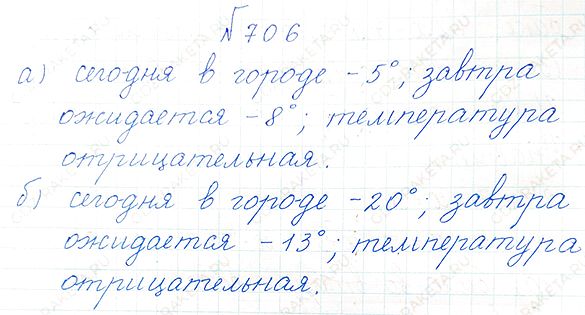 №706
а) сегодня в городе -5°; завтра
ожидается -8°; температура
отрицательная.
б) сегодня в городе -20°; завтра
ожидается -13°; температура
отрицательная.